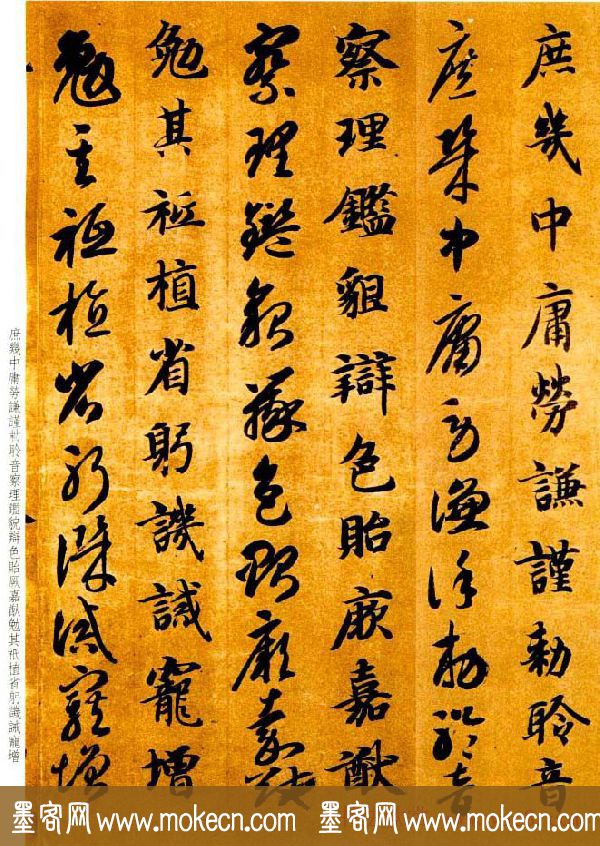 庶幾中庸勞謙謹勅聆音
庶幾中庸勞謙謹勅聆音
察理鑑貌辯色貽厥嘉猷
察理鑑貌辯色貽厥嘉猷
勉其祗植省躬譏誡寵增
勉其祗植省躬譏誡寵增
庶幾中庸勞謙謹勅聆音察理鑑貌辯色貽厥嘉猷勉其祗植省躬譏誡寵增
墨客网 www.mokecn.com 墨客网 www.mokecn.com